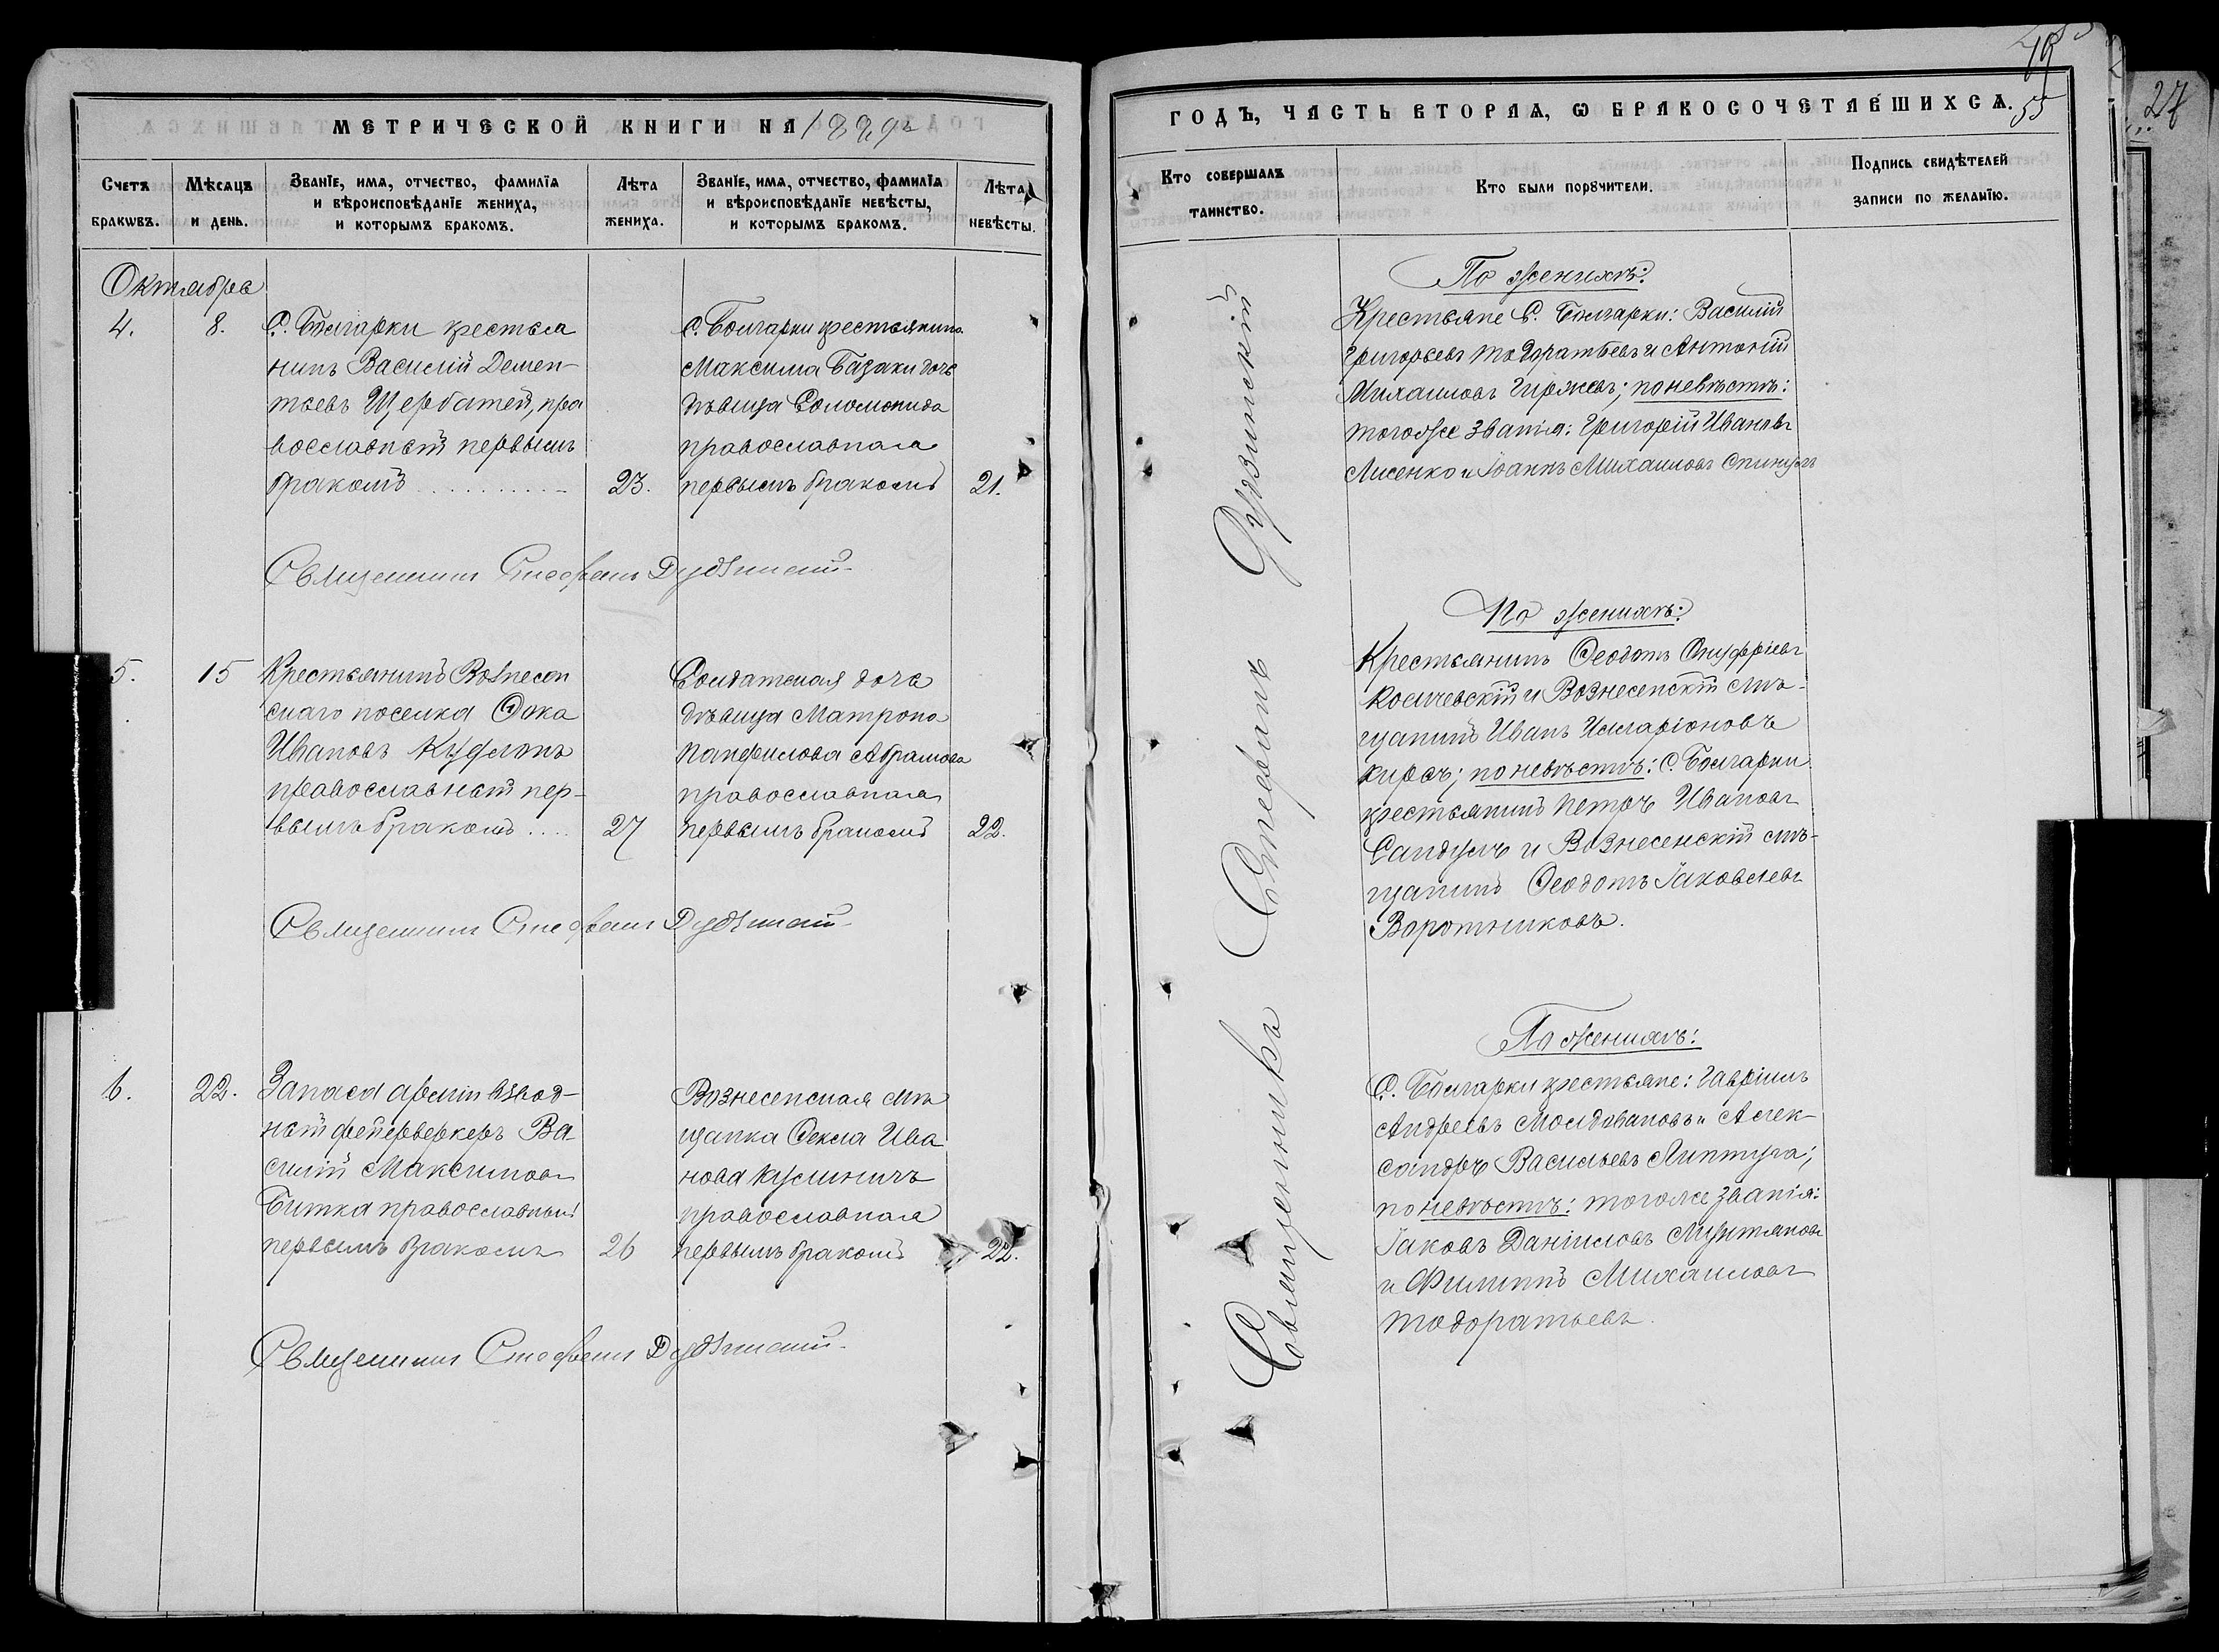 МЕТРИЧЕСКОЙ КНИГИ НА
Счетъ браковъ.
Мѣсяцъ и день.
Званіе, имя, отчество, фамилія
и вѣроисповѣданіе жениха,
и которымъ бракомъ.
Лѣта
жениха.
Званіе, имя, отчество, фамилія
и вѣроисповѣданіе невѣсты,
и которымъ бракомъ.
Лѣта
невѣсты.
Октября
4.
8.
С. Болгарки крестья
нинъ Василій Демен-
тьевъ Щербатей, пра
вославный первымъ
бракомъ
23.
С. Болгарки крестьянина
Максима Базаки дочь
дѣвица Соломонида
православная
первымъ бракомъ
21.
Священникъ Стефанъ
5.
15
Крестьянинъ Вознесен
скаго поселка Фока
Ивановъ
православный пер-
вымъ бракомъ
27
Солдатская дочь
дѣвица Матрона
Панфилова Абрамова
православная
первымъ бракомъ
22.
Священникъ Стефанъ
6.
22.
Запаса арміи взвод-
ный фейерверкеръ Ва
силій Максимовъ
Битка православный
первымъ бракомъ
26
Вознесенская мѣ
щанка Фекла Ива
нова
православная
первымъ бракомъ
22.
Священникъ Стефанъ
55
27
ГОДЪ, ЧАСТЬ ВТОРАЯ, Ѡ БРАКОСОЧЕТАВШИХСЯ.
Кто совершалъ
таинство.
Кто были поручители.
Подпись свидѣтелей
записи по желанію.
Священника Стефанъ
По женихѣ:
Крестьяне С. Болгарки: Василій
Григорьевъ Тодоратьевъ и Антоній
Михаиловъ Гиржевъ; по невѣстѣ:
тогоже званія: Григорій Ивановъ
Лисенко и Іоаннъ Михаиловъ
По женихѣ:
Крестьянинъ Феодотъ Онуфріевъ
и Вознесенскій мѣ-
щанинъ Иванъ Илларіоновъ
Кирсъ; по невѣстѣ: С. Болгарки
крестьянинъ Петръ Ивановъ
Сандулъ и Вознесенскій мѣ-
щанинъ Феодотъ Іаковлевъ
Воротниковъ.
По женихѣ:
С. Болгарки крестьяне: Гавріилъ
Андреевъ Молдовановъ и Алек-
сандръ Васильевъ Липтуга;
по невѣстѣ: тогоже званія:
Іаковъ Даніиловъ Мунтяновъ
и Филиппъ Михаиловъ
Тодоратьевъ.